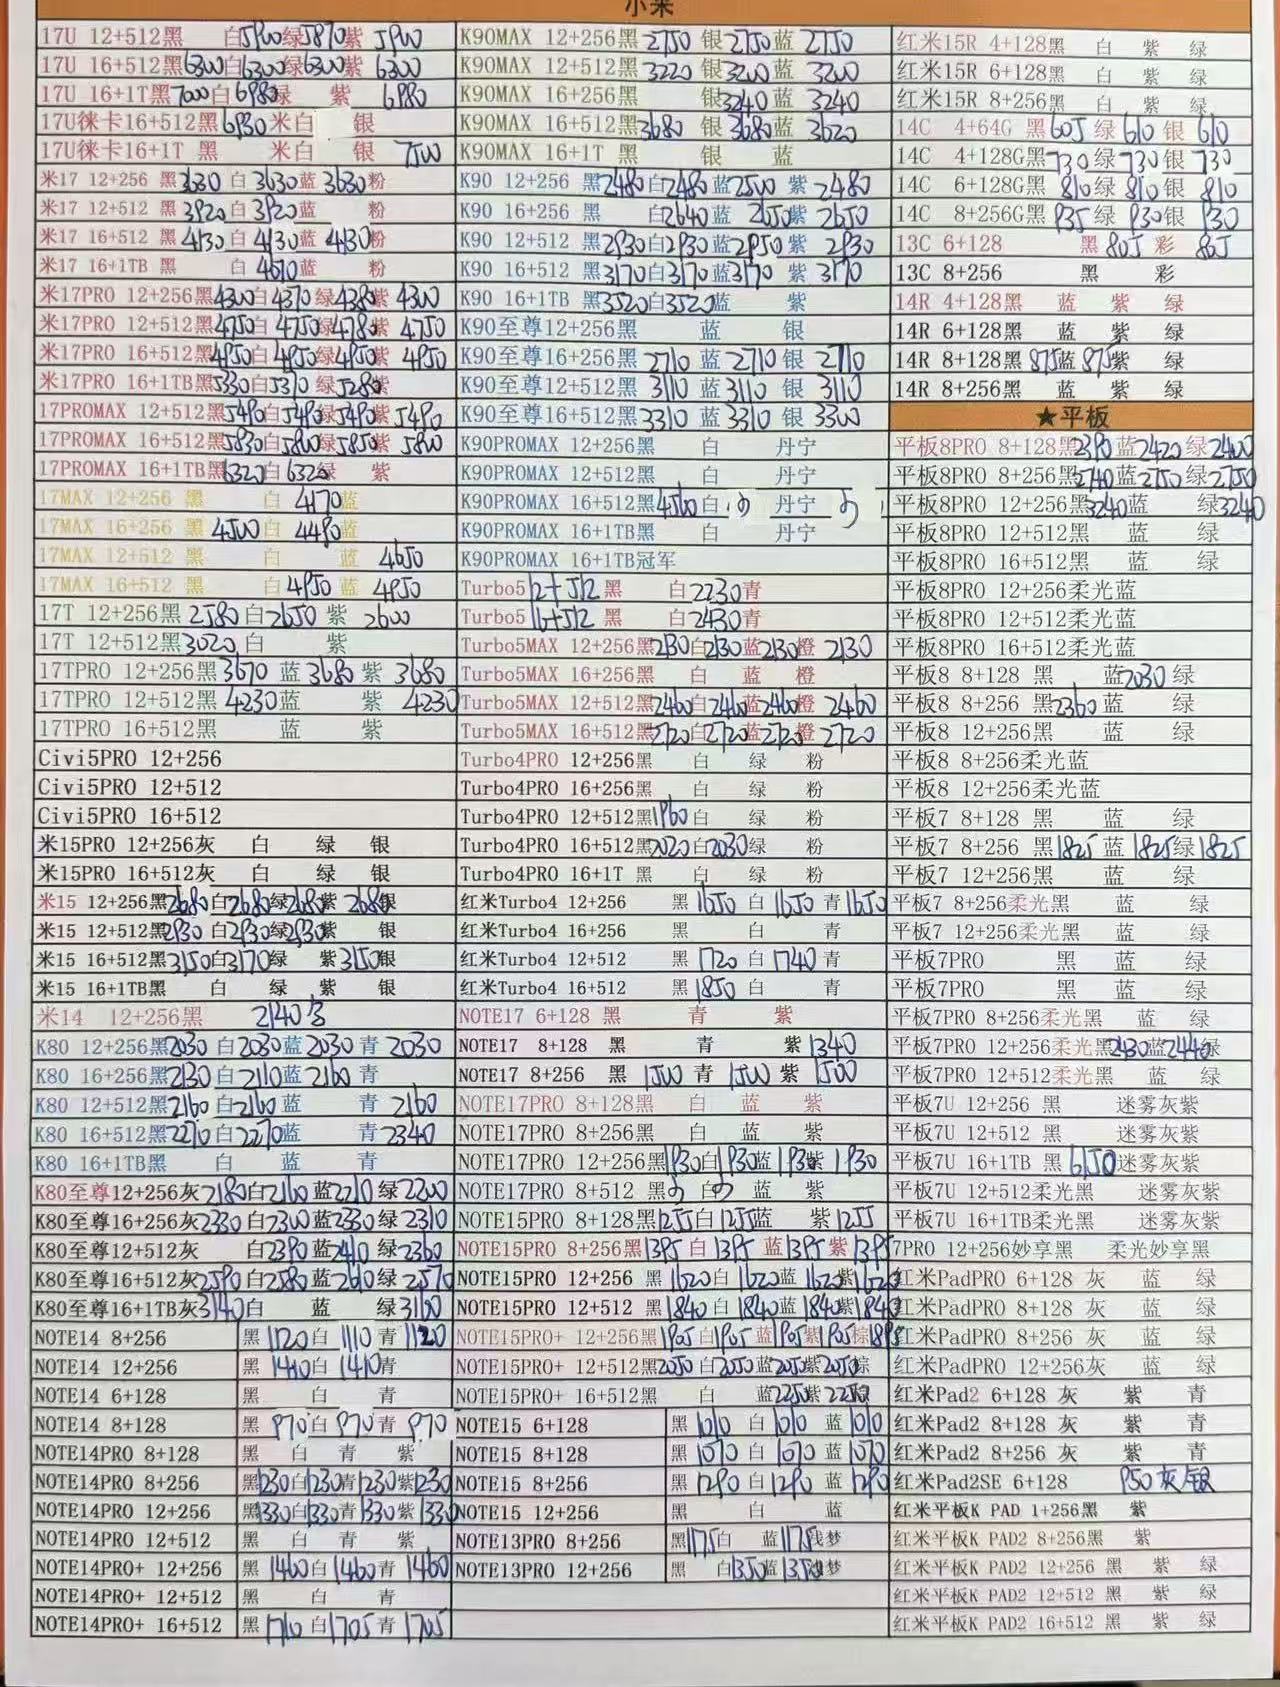 小米
17U 12+512黑 白5900绿5870紫 5900
17U 16+512黑6300白6300绿6300紫 6300
17U 16+1T黑7000白6980绿 紫 6980
17U徕卡16+512黑6930米白 银
17U徕卡16+1T 黑 米白 银 7500
米17 12+256 黑3630 白3630蓝3630粉
米17 12+512 黑3920白3920蓝 粉
米17 16+512 黑4130白4130蓝4130粉
米17 16+1TB 黑 白4670蓝 粉
米17PRO 12+256黑4300白4370绿4380紫4300
米17PRO 12+512黑4750白4750绿4780紫4750
米17PRO 16+512黑4950白4950绿4950紫4950
米17PRO 16+1TB黑5330白5370绿5280紫
17PROMAX 12+512黑5490白5490绿5490紫5490
17PROMAX 16+512黑5830白5800绿5850紫5800
17PROMAX 16+1TB黑6320白6320绿 紫
17MAX 12+256 黑 白 4170蓝
17MAX 16+256 黑4500 白 4490蓝
17MAX 12+512 黑 白 蓝 4650
17MAX 16+512 黑 白4950蓝 4950
17T 12+256黑2580白2650 紫 2600
17T 12+512黑3020白 紫
17TPRO 12+256黑3670 蓝3680 紫 3680
17TPRO 12+512黑4230蓝 紫 4230
17TPRO 16+512黑 蓝 紫
Civi5PRO 12+256
Civi5PRO 12+512
Civi5PRO 16+512
米15PRO 12+256灰 白 绿 银
米15PRO 16+512灰 白 绿 银
米15 12+256黑2680白2680绿2680紫2680银
米15 12+512黑2930白2930绿2930紫 银
米15 16+512黑3150白3170绿 紫3150银
米15 16+1TB黑 白 绿 紫 银
米14 12+256黑 2140
K80 12+256黑2030白2030蓝2030青2030
K80 16+256黑2130白2110蓝2160青
K80 12+512黑2160白2160蓝 青2160
K80 16+512黑2270白2270蓝 青2340
K80 16+1TB黑 白 蓝 青
K80至尊12+256灰2180白2160蓝2210绿2200
K80至尊16+256灰2330白2300蓝2330绿2310
K80至尊12+512灰 白2390蓝2410绿2360
K80至尊16+512灰2590白2580蓝2610绿2570
K80至尊16+1TB灰3140白 蓝 绿3100
NOTE14 8+256 黑1120白1110青1120
NOTE14 12+256 黑1410白1410青
NOTE14 6+128 黑 白 青
NOTE14 8+128 黑970白970青970
NOTE14PRO 8+128 黑 白 青 紫
NOTE14PRO 8+256 黑1230白1230青1230紫1230
NOTE14PRO 12+256 黑1330白1330青1330紫1330
NOTE14PRO 12+512 黑 白 青 紫
NOTE14PRO+ 12+256 黑1460白1460青1460
NOTE14PRO+ 12+512 黑 白 青
NOTE14PRO+ 16+512 黑1710白1705青1705
K90MAX 12+256黑2750 银2750蓝 2750
K90MAX 12+512黑3220 银3200蓝 3200
K90MAX 16+256黑 银3240蓝 3240
K90MAX 16+512黑3680 银3680蓝3620
K90MAX 16+1T 黑 银 蓝
K90 12+256 黑2480白2480蓝2500 紫2480
K90 16+256 黑 白2640蓝 2650紫2650
K90 12+512 黑2930白2930蓝2950紫 2930
K90 16+512 黑3170白3170蓝3170 紫 3170
K90 16+1TB 黑3520白3520蓝 紫
K90至尊12+256黑 蓝 银
K90至尊16+256黑2710 蓝2710 银 2710
K90至尊12+512黑 3110 蓝3110 银 3110
K90至尊16+512黑3310 蓝3310 银 3300
K90PROMAX 12+256黑 白 丹宁
K90PROMAX 12+512黑 白 丹宁
K90PROMAX 16+512黑4560白 丹宁
K90PROMAX 16+1TB黑 白 丹宁
K90PROMAX 16+1TB冠军
Turbo5 12+512 黑 白2230青
Turbo5 16+512 黑 白2430青
Turbo5MAX 12+256黑2130白2130蓝2130橙 2130
Turbo5MAX 16+256黑 白 蓝 橙
Turbo5MAX 12+512黑2460白2460蓝2460橙 2460
Turbo5MAX 16+512黑2720白2720蓝2720橙 2720
Turbo4PRO 12+256黑 白 绿 粉
Turbo4PRO 16+256黑 白 绿 粉
Turbo4PRO 12+512黑1960白 绿 粉
Turbo4PRO 16+512黑2020白2030绿 粉
Turbo4PRO 16+1T 黑 白 绿 粉
红米Turbo4 12+256 黑 1650 白 1650 青1650
红米Turbo4 16+256 黑 白 青
红米Turbo4 12+512 黑 1720 白 1740 青
红米Turbo4 16+512 黑 1850 白 青
NOTE17 6+128 黑 青 紫
NOTE17 8+128 黑 青 紫1340
NOTE17 8+256 黑 1500 青 1500 紫 1500
NOTE17PRO 8+128黑 白 蓝 紫
NOTE17PRO 8+256黑 白 蓝 紫
NOTE17PRO 12+256黑1930白1930蓝1930紫1930
NOTE17PRO 8+512 黑 白 蓝 紫
NOTE15PRO 8+128黑1255白1255蓝 紫1255
NOTE15PRO 8+256黑1395白1395蓝1395紫1395
NOTE15PRO 12+256 黑1620白1620蓝1620紫1620
NOTE15PRO 12+512 黑1840白1840蓝1840紫1840
NOTE15PRO+ 12+256黑1905白1905蓝1905紫1905棕1895
NOTE15PRO+ 12+512黑2050白2050蓝2050紫2050棕
NOTE15PRO+ 16+512黑 白 蓝2250紫2250棕
NOTE15 6+128 黑1010 白1010 蓝1010
NOTE15 8+128 黑1070 白1070 蓝1070
NOTE15 8+256 黑1290 白1290 蓝1290
NOTE15 12+256 黑 白 蓝
NOTE13PRO 8+256 黑1175白 蓝1175浅梦
NOTE13PRO 12+256 黑 白1350蓝1350浅梦
红米15R 4+128黑 白 紫 绿
红米15R 6+128黑 白 紫 绿
红米15R 8+256黑 白 紫 绿
14C 4+64G 黑605绿610银610
14C 4+128G黑730绿730银730
14C 6+128G黑810绿810银810
14C 8+256G黑935绿930银930
13C 6+128 黑805彩 805
13C 8+256 黑 彩
14R 4+128黑 蓝 紫 绿
14R 6+128黑 蓝 紫 绿
14R 8+128黑875蓝875紫 绿
14R 8+256黑 蓝 紫 绿
★平板
平板8PRO 8+128黑2390蓝2420绿2400
平板8PRO 8+256黑2740蓝2750绿2750
平板8PRO 12+256黑3240蓝 绿3240
平板8PRO 12+512黑 蓝 绿
平板8PRO 16+512黑 蓝 绿
平板8PRO 12+256柔光蓝
平板8PRO 12+512柔光蓝
平板8PRO 16+512柔光蓝
平板8 8+128 黑 蓝2030绿
平板8 8+256 黑2360蓝 绿
平板8 12+256黑 蓝 绿
平板8 8+256柔光蓝
平板8 12+256柔光蓝
平板7 8+128 黑 蓝 绿
平板7 8+256 黑1825蓝1825绿1825
平板7 12+256黑 蓝 绿
平板7 8+256柔光黑 蓝 绿
平板7 12+256柔光黑 蓝 绿
平板7PRO 黑 蓝 绿
平板7PRO 黑 蓝 绿
平板7PRO 8+256柔光黑 蓝 绿
平板7PRO 12+256柔光黑2430蓝2440绿
平板7PRO 12+512柔光黑 蓝 绿
平板7U 12+256 黑 迷雾灰紫
平板7U 12+512 黑 迷雾灰紫
平板7U 16+1TB 黑 6150迷雾灰紫
平板7U 12+512柔光黑 迷雾灰紫
平板7U 16+1TB柔光黑 迷雾灰紫
7PRO 12+256妙享黑 柔光妙享黑
红米PadPRO 6+128 灰 蓝 绿
红米PadPRO 8+128灰 蓝 绿
红米PadPRO 8+256灰 蓝 绿
红米PadPRO 12+256灰 蓝 绿
红米Pad2 6+128 灰 紫 青
红米Pad2 8+128 灰 紫 青
红米Pad2 8+256 灰 紫 青
红米Pad2SE 6+128 950灰/银
红米平板K PAD 1+256黑 紫
红米平板K PAD2 8+256黑 紫
红米平板K PAD2 12+256 黑 紫 绿
红米平板K PAD2 12+512 黑 紫 绿
红米平板K PAD2 16+512 黑 紫 绿